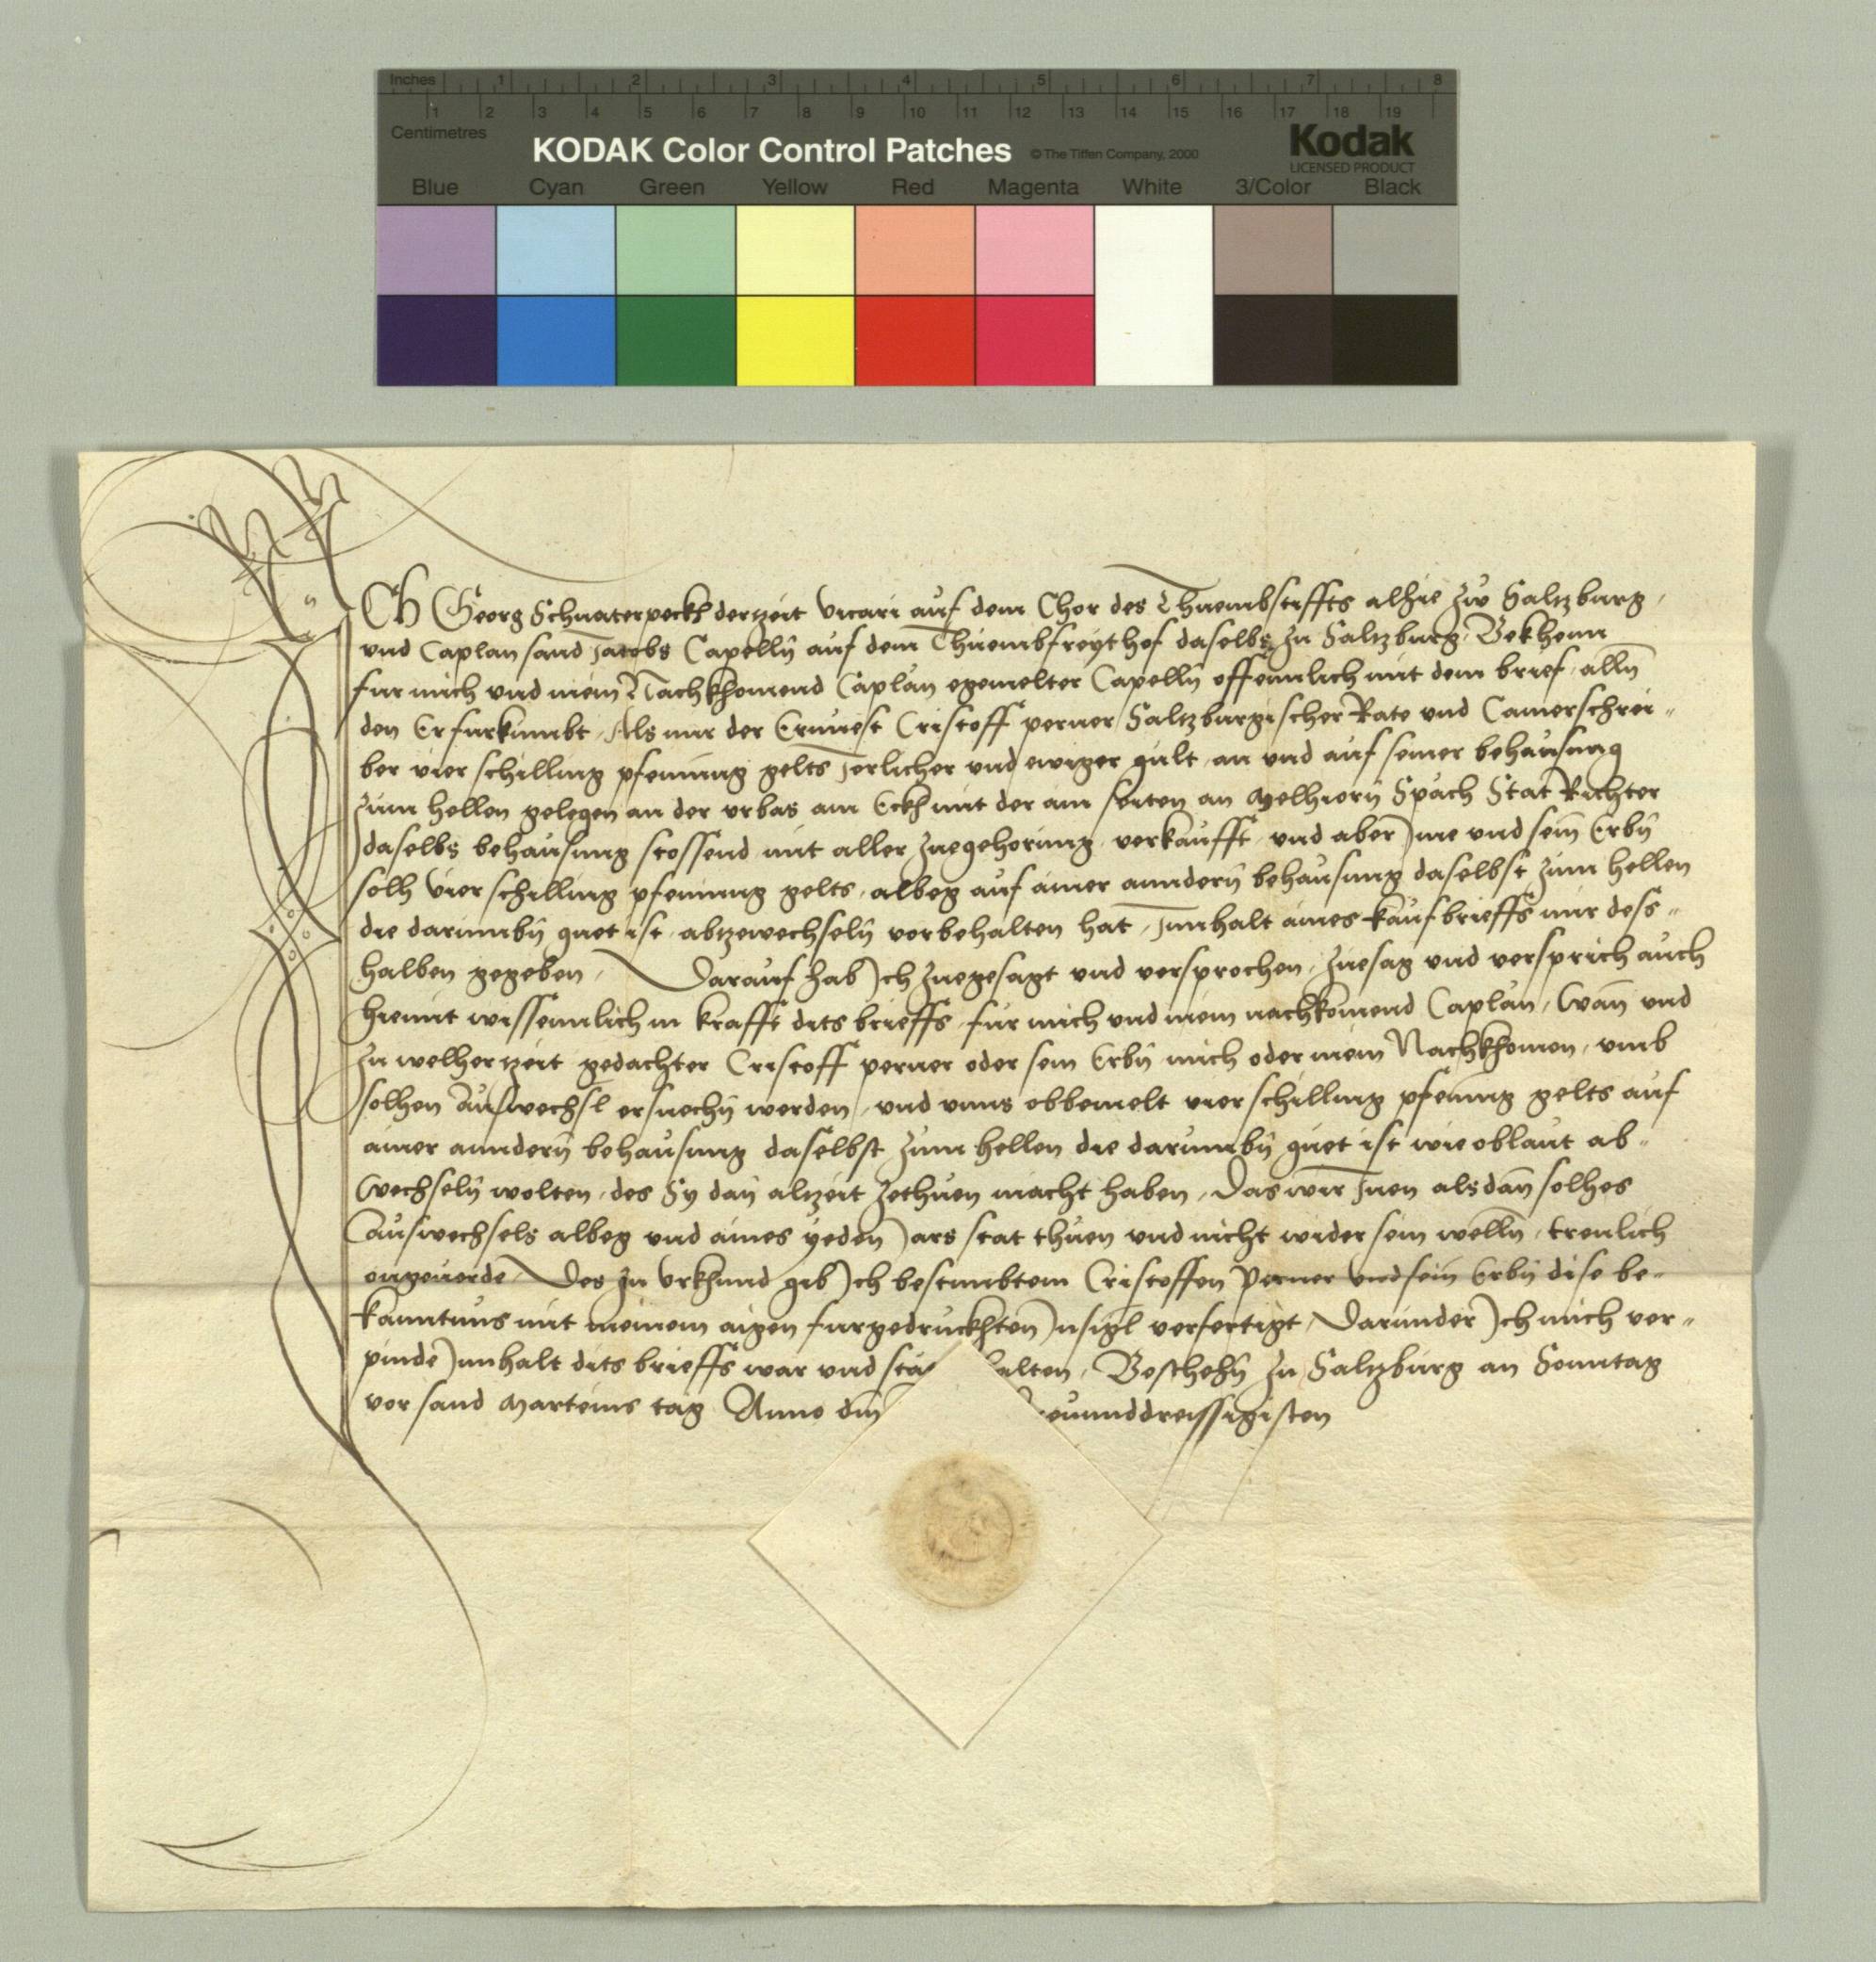 Inches 1 2 3 4 5 6 7 8
1 2 3 4 5 6 7 8 9 10 11 12 13 14 15 16 17 18 19
Centimetres
KODAK Color Control Patches © The Tiffen Company, 2000 Kodak
LICENSED PRODUCT
Blue Cyan Green Yellow Red Magenta White 3/Color Black
ICH Georg Schnaterpeckh derzeit Vicari auf dem Chor des Thuembstiffts alhie zw Saltzburg,
vnd Caplan sand Jacobs Capelln auf dem Thuembfreythof daselbs zu Saltzburg, Bekhenn
fur mich vnd mein Nachkhomend Caplan egemelter Capelln offennlich mit dem brief, alln
den Er furkumbt, Als mir der Ernuest Cristoff perner Saltzburgischer Rate vnd Camerschrei-
ber vier schilling pfenning gelts Jerlicher vnd ewiger gult, an vnd auf seiner behausung
zum hellen gelegen an der vrbas am Eckh mit der ain seiten an Melhiorn Spach Stat Richter
daselbs behausung stossend mit aller zuegehorung, verkaufft, vnd aber Jme vnd sein Erbn
solh vier schilling pfenning gelts, albeg auf ainer anndern behausung daselbst zum hellen
die darumbn guet ist, abzewechseln vorbehalten hat, Innhalt aines kaufbrieffs mir dess-
halben gegeben, Darauf hab Ich zuegesagt vnd versprochen, zuesag vnd versprich auch
hiemit wissennlich in krafft dits brieffs, fur mich vnd mein nachkomend Caplan, Wan vnd
zu welher zeit gedachter Cristoff perner oder sein Erbn mich oder mein Nachkhomen, vmb
solhen Auswechsl ersuechn werden, vnd vnns obbemelt vier schilling pfenning gelts auf
ainer anndern behausung daselbst zum hellen die darumbn guet ist wie oblaut ab-
wechseln wolten, des Sy dan alzeit zethuen macht haben, Das wir Inen alsdan solhes
Auswechsels albeg vnd aines yeden Jars stat thuen vnd nicht wider sein welln, trewlich
ongeuerde, Des zu Vrkhund gib Ich bestimbtem Cristoffen Perner vnd sein Erbn dise be-
kanntnus mit meinem aigen furgedruckhten Insigl verfertigt, Darunder Ich mich ver-
pinde Innhalt dits brieffs war vnd sta alten, Beschehn zu Saltzburg an Sonntag
vor sand Marteins tag Anno dm euunddreissigisten